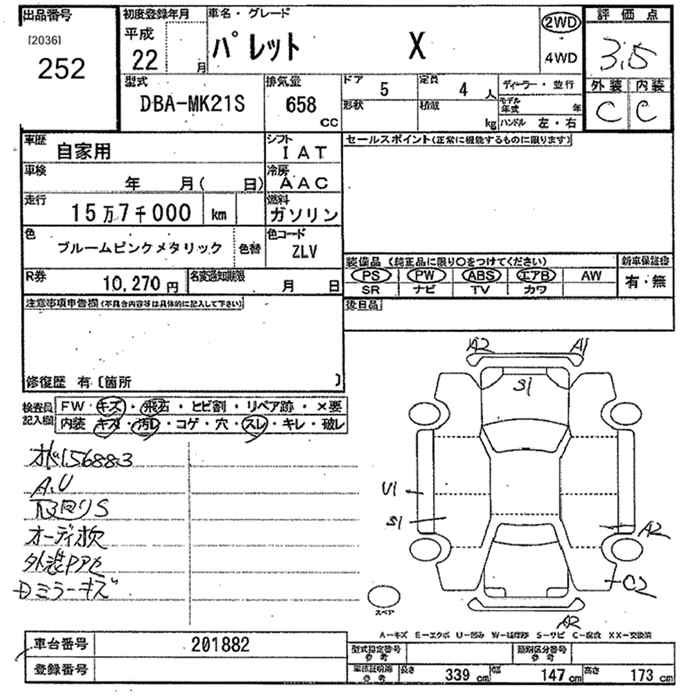 出品番号
[2036]
252
初度登録年月
平成
22 月
車名・グレード
パレット X
2WD
4WD
評価点
3.5
外装 内装
C C
型式
DBA-MK21S
排気量
658
cc
ドア 5
定員 4 人
形状
積載 kg
ディーラー・並行
モデル年式 年
ハンドル 左・右
車歴
自家用
シフト
IAT
セールスポイント(正常に機能するものに限ります)
車検
年 月( 日)
冷房
AAC
走行
15万7千000 km
燃料
ガソリン
色
ブルームピンクメタリック
色替
色コード
ZLV
装備品(純正品に限り○をつけてください)
新車保証書
PS PW ABS エアB AW
SR ナビ TV カワ
有・無
R券
10,270 円
名変通知期限
月 日
後日品
注意事項申告欄(不具合内容等は具体的に記入して下さい)
修復歴 有〔箇所 〕
検査員記入欄
FW・キズ・飛石・ヒビ割・リペア跡・×要
内装 キズ・汚レ・コゲ・穴・スレ・キレ・破レ
オド156883
A.U
取回りS
オーディオ欠
外装PPセ
Dミラーキズ
A2 A1
S1
U1
S1
A2
C2
A2
スペア
A-キズ E-エクボ U-凹み W-補修跡 S-サビ C-腐食 XX-交換済
車台番号
201882
登録番号
型式指定番号
参考
類別区分番号
参考
車検証明等
参考
長さ 339 cm
幅 147 cm
高さ 173 cm